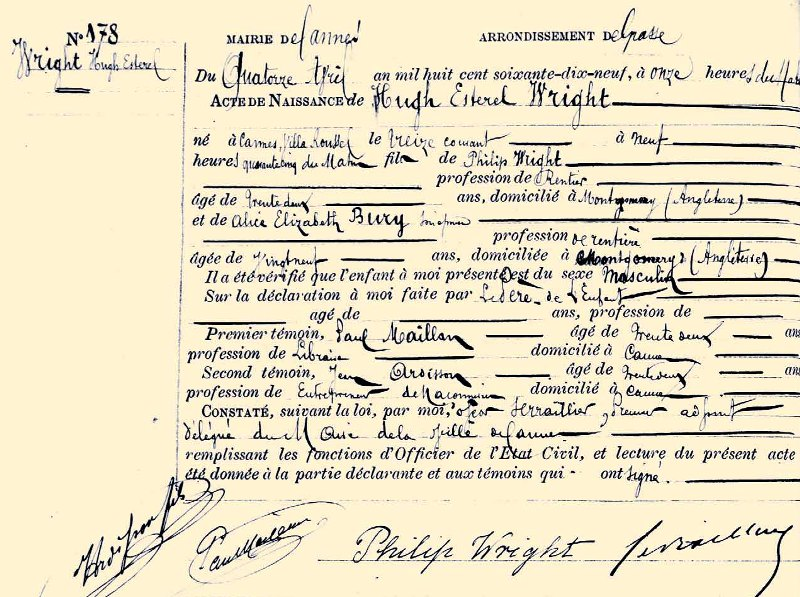 N° 178
Wright Hugh Esterel
MAIRIE de Cannes ARRONDISSEMENT DE Grasse
Du Quatorze Avril an mil huit cent soixante-dix-neuf, à onze heures du Matin
ACTE DE NAISSANCE de Hugh Esterel Wright
né à Cannes, Villa le treize courant à neuf
heures quarante cinq du Matin fils de Philip Wright
profession de Rentier
âgé de trente deux ans, domicilié à Montgomery (Angleterre)
et de Alice Elizabeth Bury
profession de rentière
âgée de vingt neuf ans, domiciliée à Montgomery (Angleterre)
Il a été vérifié que l'enfant à moi présenté est du sexe Masculin
Sur la déclaration à moi faite par Le Père de l'Enfant
âgé de ans, profession de
Premier témoin, Paul Maillan âgé de trente deux ans
profession de Libraire domicilié à Cannes
Second témoin, Jean Ardisson âgé de trente deux ans
profession de Entrepreneur de Maconnerie domicilié à Cannes
CONSTATÉ, suivant la loi, par moi, premier adjoint
délégué du Maire de la Ville de Cannes
remplissant les fonctions d'Officier de l'Etat Civil, et lecture du présent acte
été donnée à la partie déclarante et aux témoins qui ont signé.
Ardisson fils Paul Maillan Philip Wright